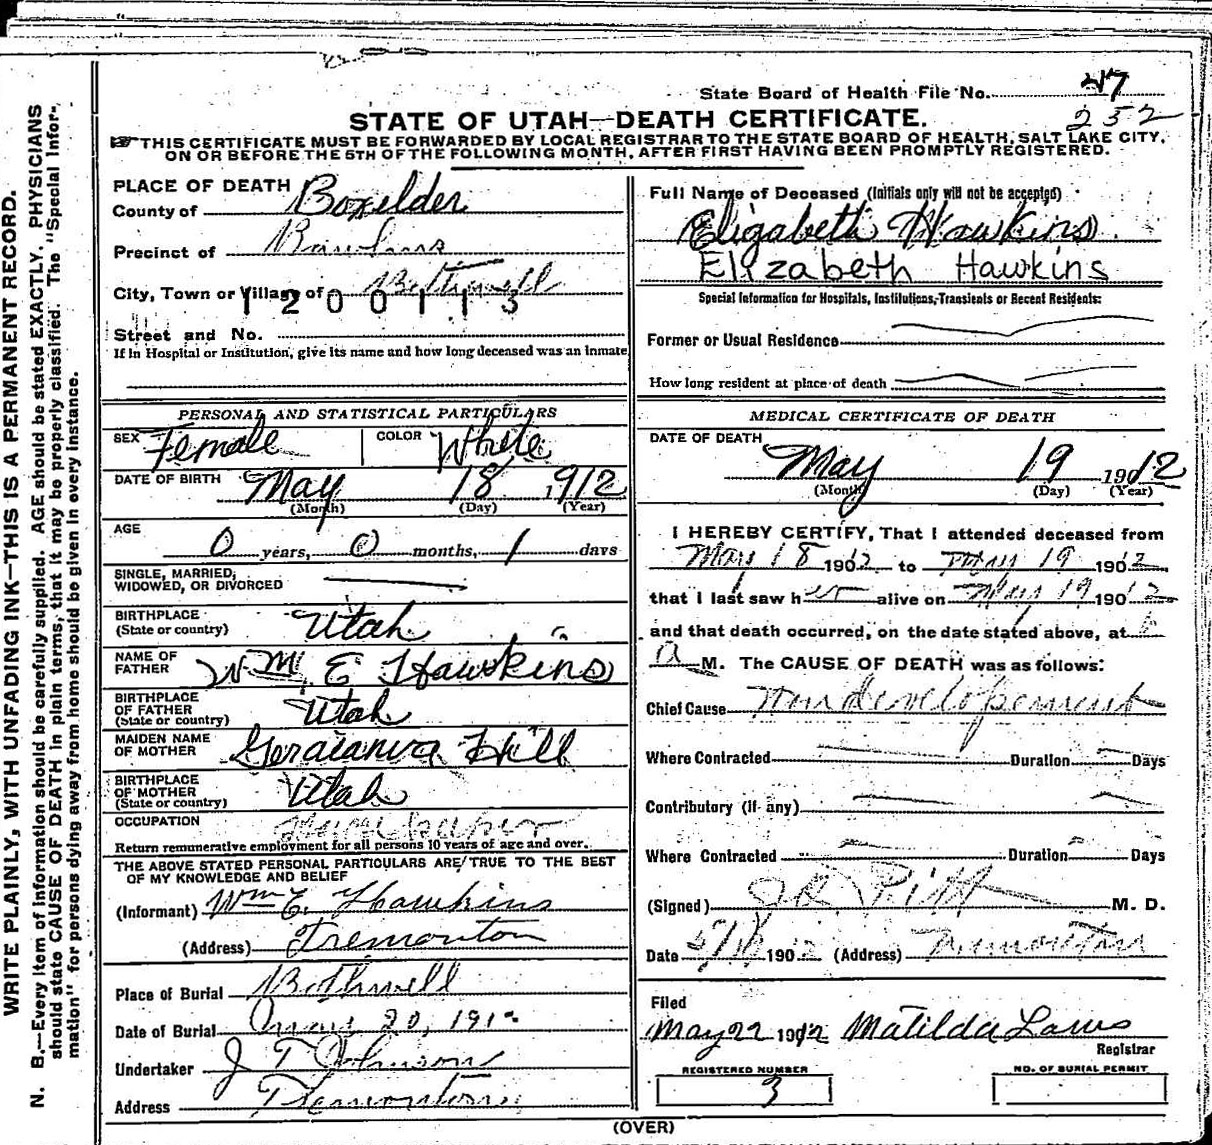 State Board of Health File No. 47
252
STATE OF UTAH—DEATH CERTIFICATE.
☞THIS CERTIFICATE MUST BE FORWARDED BY LOCAL REGISTRAR TO THE STATE BOARD OF HEALTH, SALT LAKE CITY,
ON OR BEFORE THE 5TH OF THE FOLLOWING MONTH, AFTER FIRST HAVING BEEN PROMPTLY REGISTERED.
WRITE PLAINLY, WITH UNFADING INK—THIS IS A PERMANENT RECORD.
N. B.—Every item of information should be carefully supplied. AGE should be stated EXACTLY. PHYSICIANS
should state CAUSE OF DEATH in plain terms, that it may be properly classified. The "Special Infor-
mation" for persons dying away from home should be given in every instance.
PLACE OF DEATH
County of Boxelder
Precinct of
City, Town or Village of Bothwell
1200113
Street and No.
If in Hospital or Institution, give its name and how long deceased was an inmate
PERSONAL AND STATISTICAL PARTICULARS
SEX Female COLOR White
DATE OF BIRTH May 18 1912
(Month) (Day) (Year)
AGE
0 years, 0 months, 1 days
SINGLE, MARRIED,
WIDOWED, OR DIVORCED
BIRTHPLACE
(State or country) Utah
NAME OF
FATHER Wm E Hawkins
BIRTHPLACE
OF FATHER
(State or country) Utah
MAIDEN NAME
OF MOTHER Hill
BIRTHPLACE
OF MOTHER
(State or country) Utah
OCCUPATION
Return remunerative employment for all persons 10 years of age and over.
THE ABOVE STATED PERSONAL PARTICULARS ARE TRUE TO THE BEST
OF MY KNOWLEDGE AND BELIEF
(Informant) Wm E. Hawkins
(Address) Tremonton
Place of Burial Bothwell
Date of Burial May 20, 1912
Undertaker J T Johnson
Address Tremonton
Full Name of Deceased (Initials only will not be accepted)
Elizabeth Hawkins
Elizabeth Hawkins
Special Information for Hospitals, Institutions, Transients or Recent Residents:
Former or Usual Residence
How long resident at place of death
MEDICAL CERTIFICATE OF DEATH
DATE OF DEATH
May 19 1912
(Month) (Day) (Year)
I HEREBY CERTIFY, That I attended deceased from
May 18 1912 to May 19 1912
that I last saw her alive on May 19 1912
and that death occurred, on the date stated above, at
a M. The CAUSE OF DEATH was as follows:
Chief Cause Nondevelopement
Where Contracted Duration Days
Contributory (if any)
Where Contracted Duration Days
(Signed) M. D.
Date 1912 (Address) Tremonton
Filed
May 22 1912 Matilda Laws
Registrar
REGISTERED NUMBER
3
NO. OF BURIAL PERMIT
(OVER)